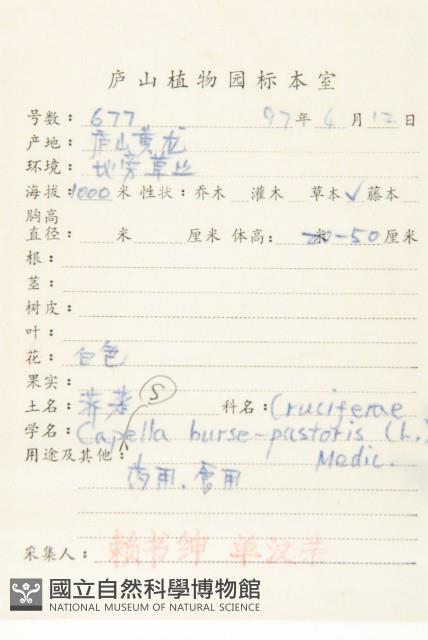 庐山植物园标本室
号数: 677 97年 4月 12日
产地: 庐山黄龙
环境: 地旁草丛
海拔: 1000 米 性状: 乔木 灌木 草本✓ 藤本
胸高
直径: 米 厘米 体高: -50厘米
根:
茎:
树皮:
叶:
花: 白色
果实: S
土名: 荠菜 科名: Cruciferae
学名: Capella burse-pastoris (L.)
用途及其他: Medic.
药用、食用
采集人: 赖书绅 单汉荣
國立自然科學博物館
NATIONAL MUSEUM OF NATURAL SCIENCE